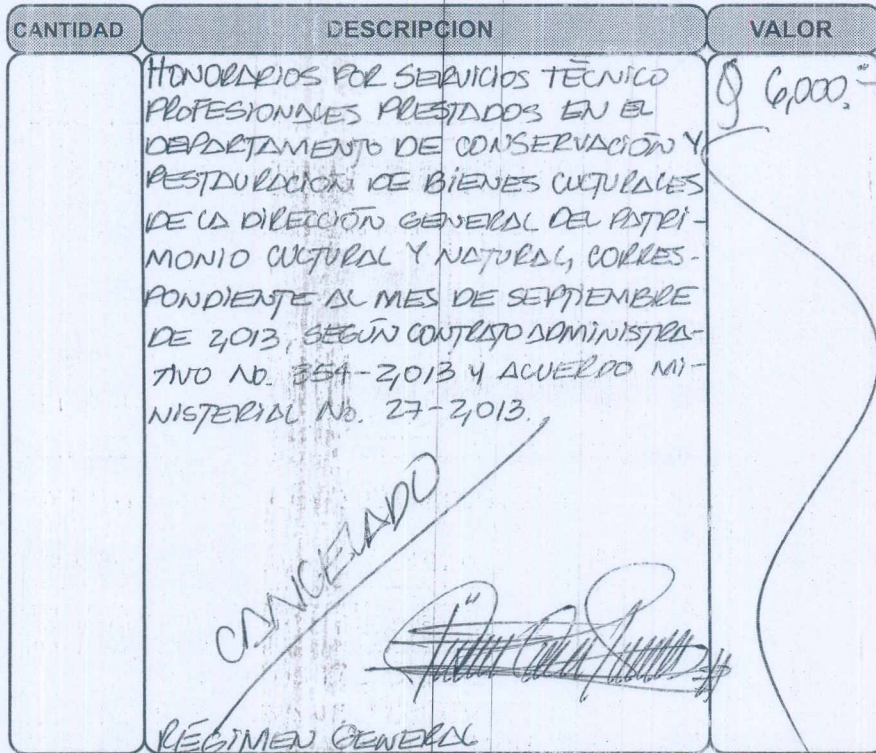 CANTIDAD DESCRIPCION VALOR
HONORARIOS POR SERVICIOS TÉCNICO Q 6,000.-
PROFESIONALES PRESTADOS EN EL
DEPARTAMENTO DE CONSERVACIÓN Y
RESTAURACIÓN DE BIENES CULTURALES
DE LA DIRECCIÓN GENERAL DEL PATRI-
MONIO CULTURAL Y NATURAL, CORRES-
PONDIENTE AL MES DE SEPTIEMBRE
DE 2,013, SEGÚN CONTRATO ADMINISTRA-
TIVO No. 354-2,013 Y ACUERDO MI-
NISTERIAL No. 27-2,013.
CANCELADO
REGIMEN GENERAL